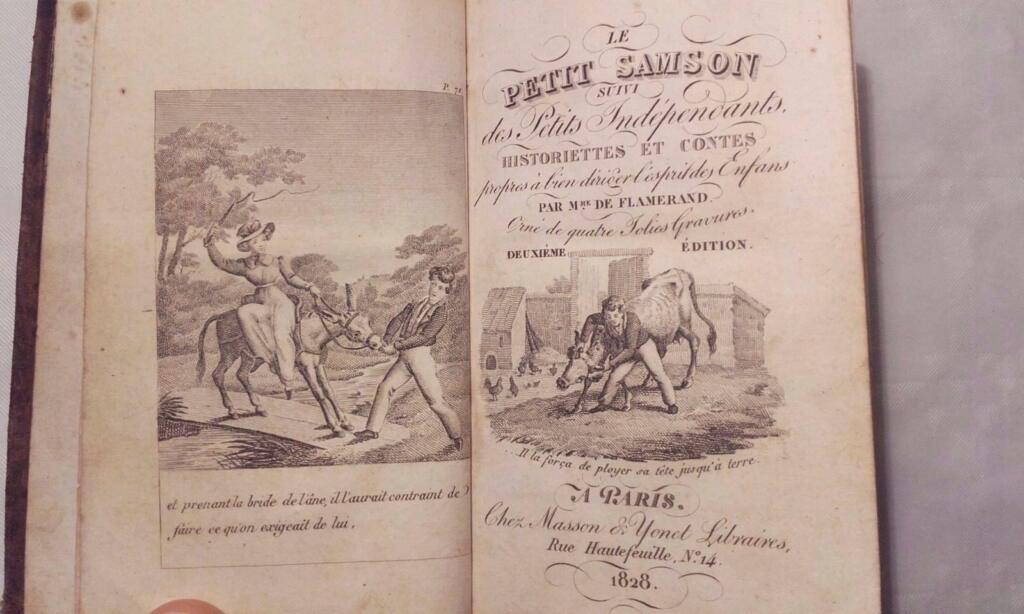 P. 71
et prenant la bride de l'âne, il l'aurait contraint de
faire ce qu'on exigeait de lui.
LE
PETIT SAMSON
SUIVI
des Petits Indépendants,
HISTORIETTES ET CONTES
propres à bien diriger l'esprit des Enfans
PAR Mme DE FLAMERAND.
Orné de quatre Jolies Gravures.
DEUXIÈME ÉDITION.
Il la força de ployer sa tête jusqu'à terre.
A PARIS.
Chez Masson & Yonet Libraires,
Rue Hautefeuille, No. 14.
1828.